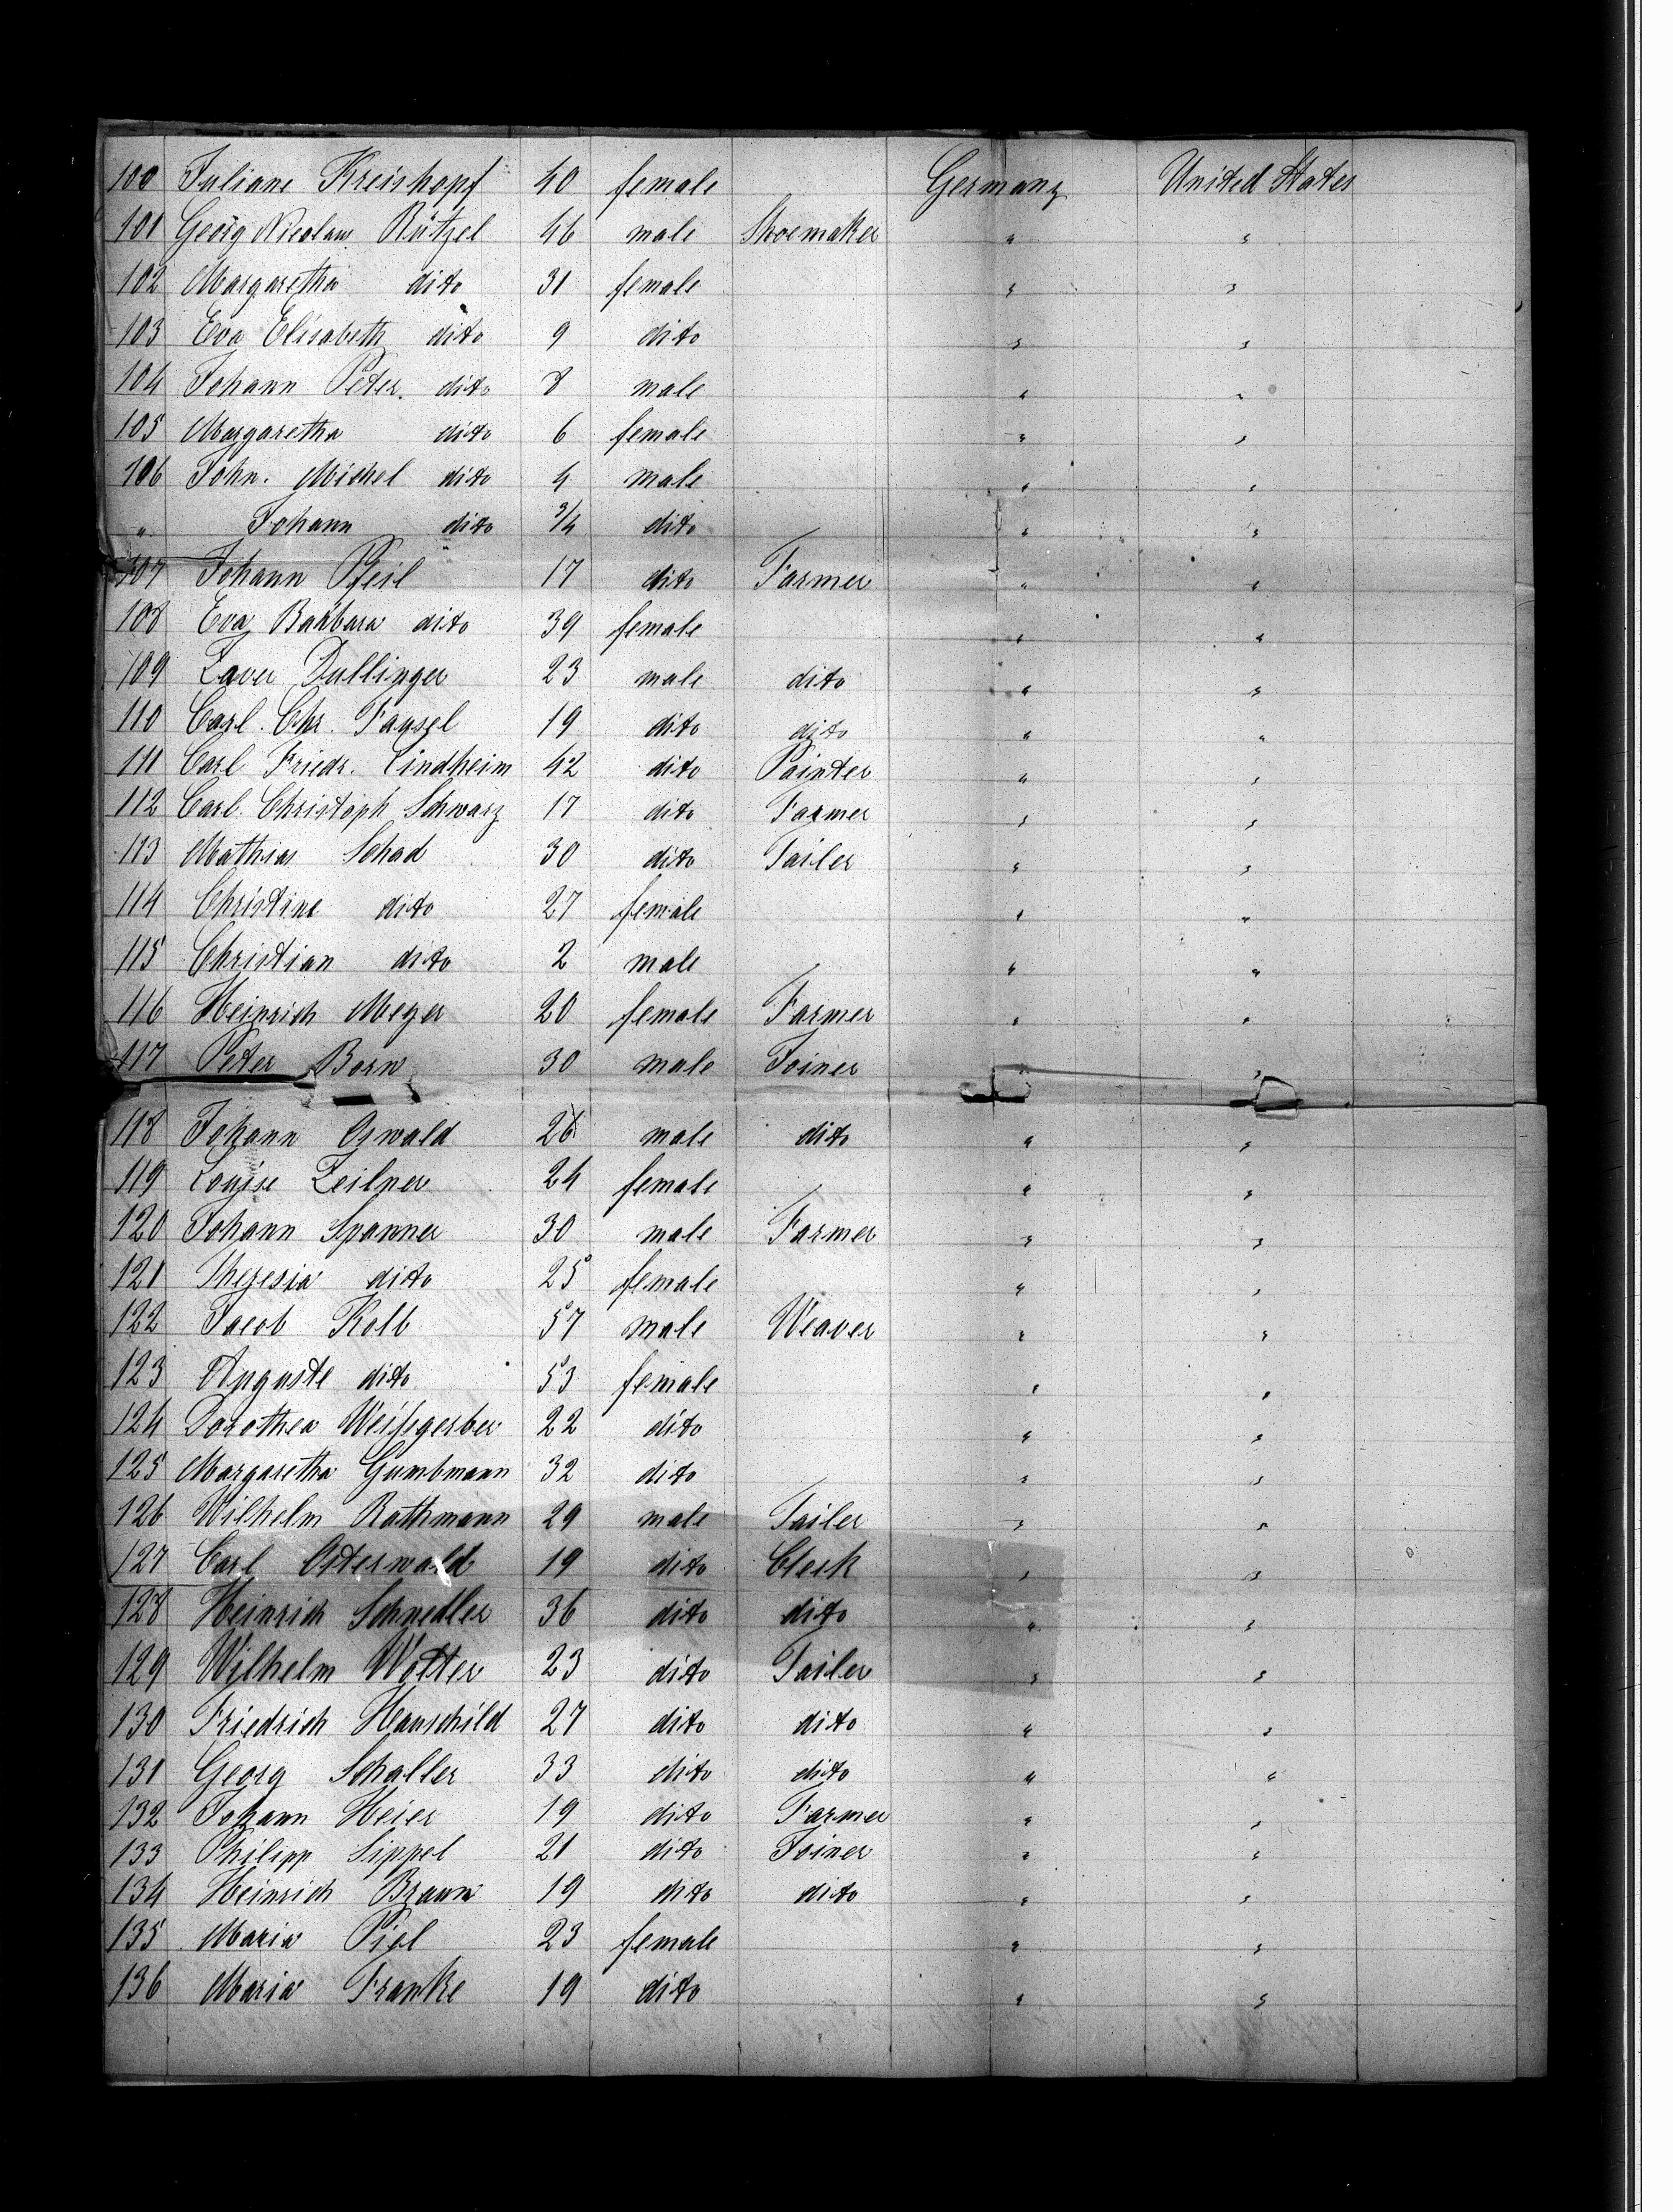 100 Juliane Kreishopf 40 female Germany United States
101 Georg Nicolaus Rützel 46 male Shoemaker " "
102 Margaretha dito 31 female " "
103 Eva Elisabeth dito 9 dito " "
104 Johann Peter. dito 8 male " "
105 Margaretha dito 6 female " "
106 John. Michel dito 4 male " "
" Johann dito 3/4 dito " "
107 Johann Pfeil 17 dito Farmer " "
108 Eva Barbara dito 39 female " "
109 Xaver Dullinger 23 male dito " "
110 Carl. Chr. Fausel 19 dito dito " "
111 Carl Friedr. Lindheim 42 dito Painter " "
112 Carl. Christoph Schwarz 17 dito Farmer " "
113 Mathias Schad 30 dito Tailer " "
114 Christine dito 27 female " "
115 Christian dito 2 male " "
116 Heinrich Meyer 20 female Farmer " "
117 Peter Born 30 male Joiner " "
118 Johann Oswald 26 male dito " "
119 Louise Zeilner 24 female " "
120 Johann Spanner 30 male Farmer " "
121 Theresia dito 25 female " "
122 Jacob Kolb 57 male Weaver " "
123 Auguste dito 53 female " "
124 Dorothea Weißgerber 22 dito " "
125 Margaretha Gumbmann 32 dito " "
126 Wilhelm Rathmann 29 male Tailer " "
127 Carl Osterwald 19 dito Clerk " "
128 Heinrich Schnedler 36 dito dito " "
129 Wilhelm Wolter 23 dito Tailer " "
130 Friedrich Hauschild 27 dito dito " "
131 Georg Schaller 33 dito dito " "
132 Johann Heier 19 dito Farmer " "
133 Philipp Sippel 21 dito Joiner " "
134 Heinrich Braun 19 dito dito " "
135 Maria Piel 23 female " "
136 Maria Franke 19 dito " "